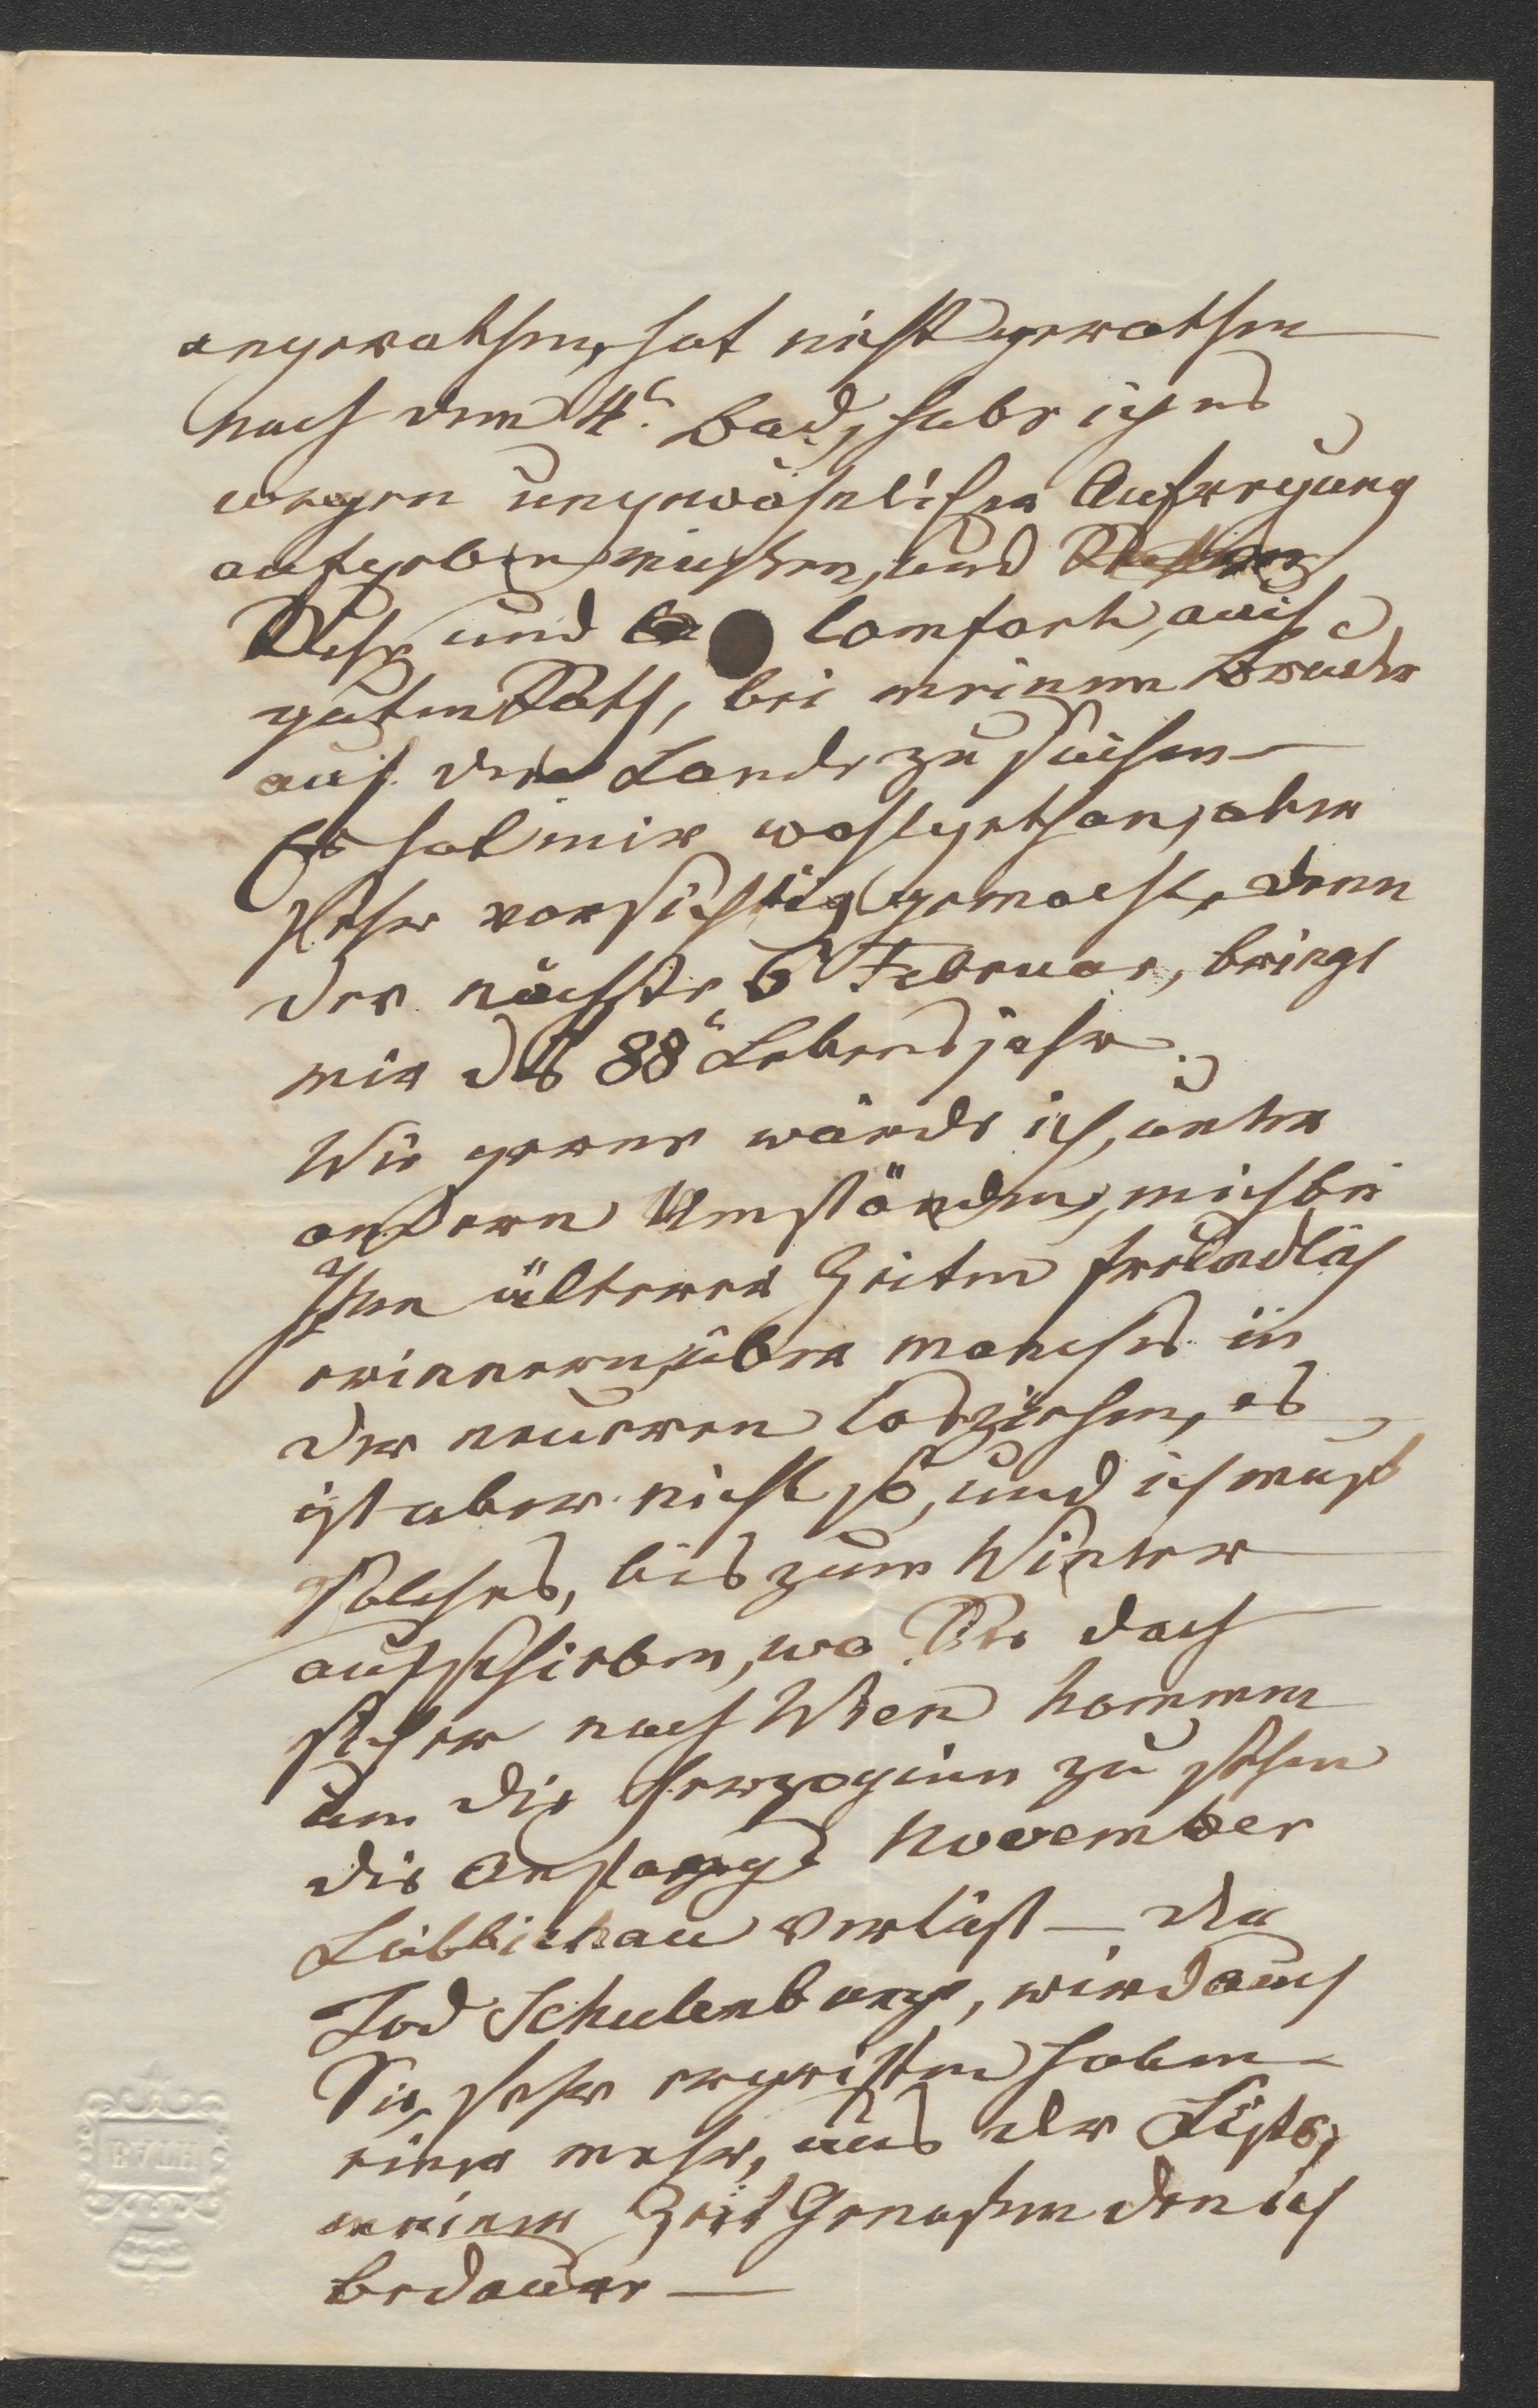 angerathen, hat nicht gerathen
nach dem 4t. Bad, habe ich es
wegen ungewöhnlicher Aufregung
aufgeben müssen, und
Ruhe und Comfort, auch
guten Rath, bei meinem Bruder
auf dem Lande zu suchen —
Es hat mir wohlgethan, aber
sehr vorsichtig gemacht, denn
der nächste 6t Februar, bringt
mir das 88t Lebensjahr.
Wie gerne würde ich, unter
andern Umständen, mich bei
Ihnen älterer Zeiten freundlich
erinnern, über manches in
der neueren losziehen, es
ist aber nicht so, und ich muß
solches, bis zum Winter
aufschieben, wo Sie doch
sicher nach Wien kommen
um die Herzoginn zu sehen
die Anfangs November
Löbbichau verläßt — der
Tod Schulenburgs, wird auch
Sie, sehr ergriffen haben —
einer mehr, aus der Liste,
meiner Zeit Genossen den ich
bedauere —
BATH